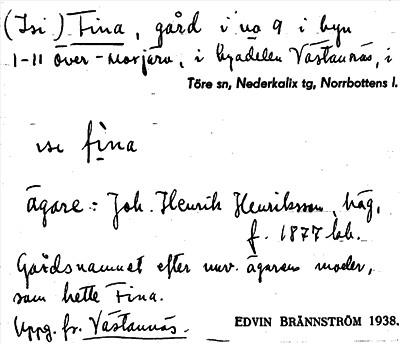 (Isi) Fina, gård i no 9 i byn
1-11 Över-Morjärv, i byadelen Västannäs, i
Töre sn, Nederkalix tg, Norrbottens l.
ise fina
ägare: Joh. Henrik Henriksson, häg,
f. 1877 lok.
Gårdsnamnet efter nuv. ägarens moder,
som hette Fina.
Uppg. fr. Västannäs.
EDVIN BRÄNNSTRÖM 1938.